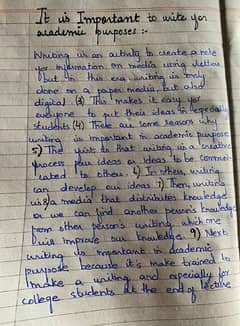 It is Important to write for
academic purposes :-
Writing is an activity to create a note
for information on media using letters
but in this era writing is only
done on a paper media, but also
digital (3) This makes it easy for
everyone to put their ideas in especially
students (4) There are some reasons why
writing is important in academic purpose
5) The first is that writing is a creative
process pour ideas or ideas to be commun-
icated to others. 6) In others, writing
can develop our ideas 7) Then, writing
is a media that distributes knowledge
or we can find another person's knowledge
from other person's writing which we
will improve our knowledge 9) Next
writing is important in academic
purpose because it's make trained to
make a writing and especially for
college students at the end of lective